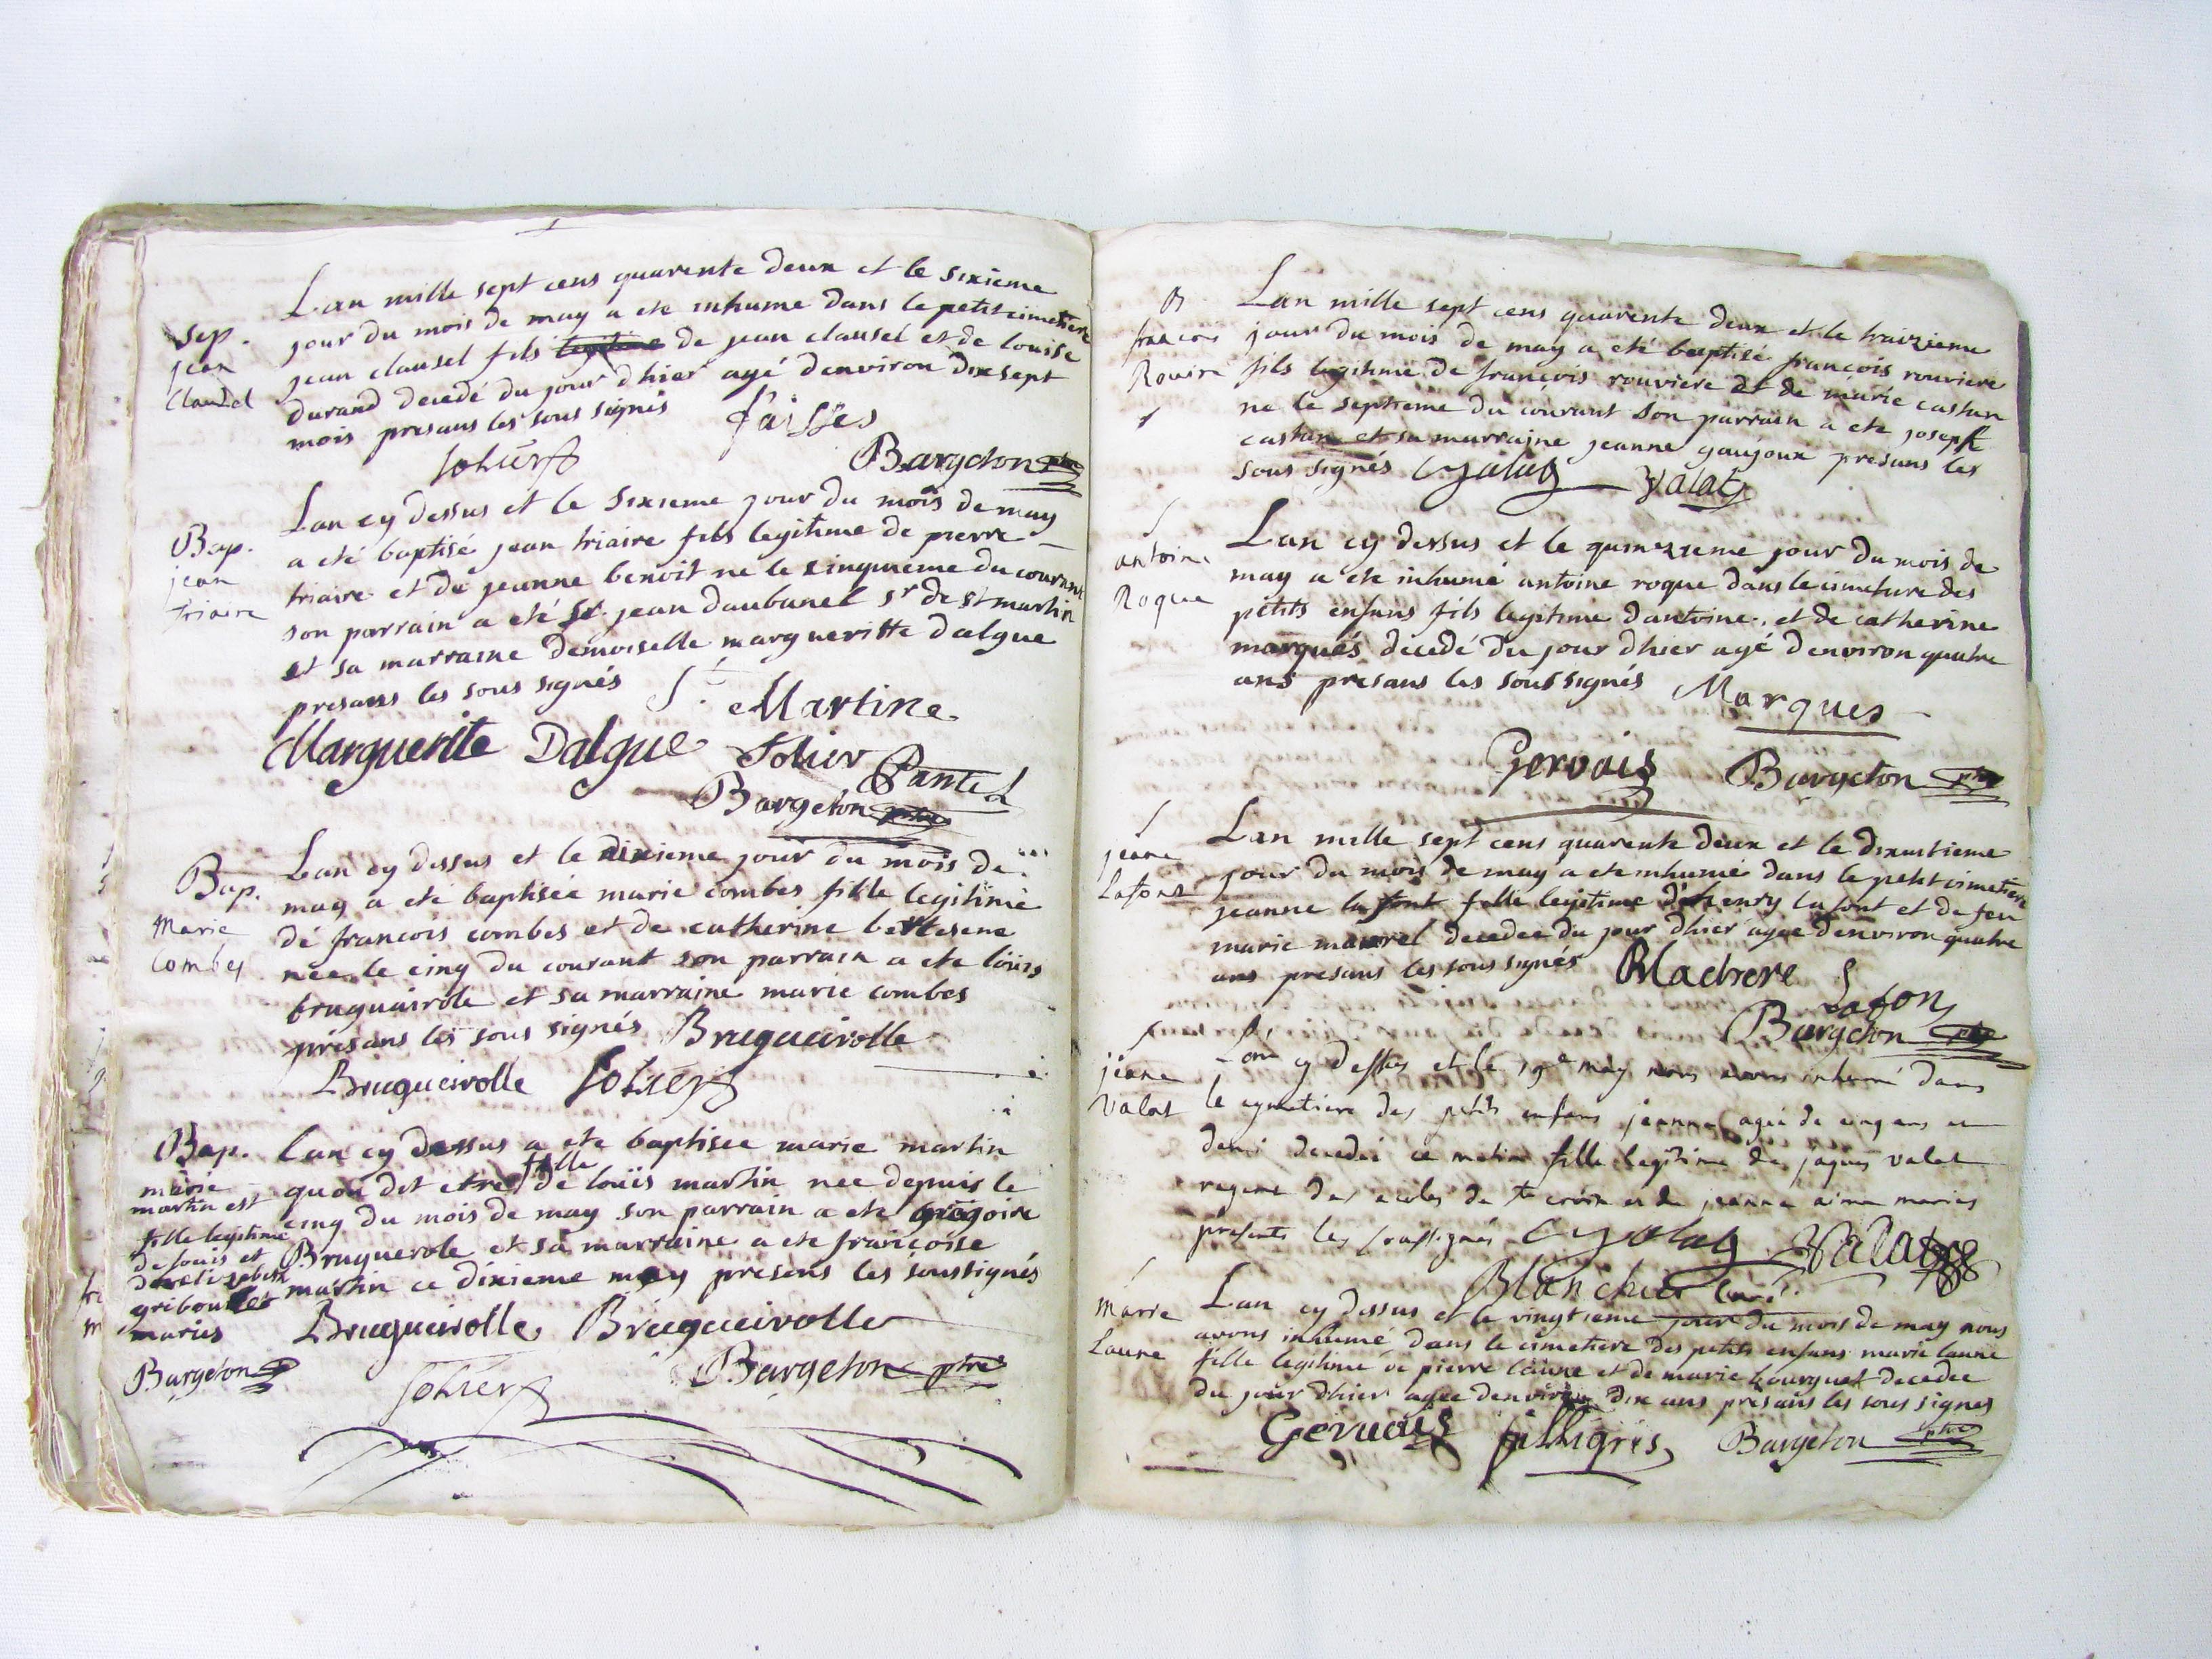 Sep.
jean
Clausel
Lan mille sept cens quarente deux et le sixieme
jour du mois de may a ete inhume dans le petit cimetiere
jean clausel fils legitime de jean clausel et de louise
durand decedé du jour dhier agé denviron dix sept
mois presans les sous signés
faisses
Solier
Bargeton ptre
Bap.
jean
triaire
Lan cy dessus et le sixieme jour du mois de may
a eté baptisé jean triaire fils legitime de pierre
triaire et de jeanne benoit ne le cinquieme du courant
son parrain a eté Sr jean daubanel sr de st martin
et sa marraine demoiselle margueritte dalgue
presans les sous signés
St Martine
Marguerite Dalgue Solier Pantel
Bargeton ptre
Bap.
Marie
Combes
Lan cy dessus et le dixieme jour du mois de
may a eté baptisée marie combes fille legitime
de francois combes et de catherine bertesene
née le cinq du courant son parrain a ete loüis
bruguairole et sa marraine marie combes
présans les sous signés Brugueirolle
Brugueirolle Solier
Bap.
marie
martin est
fille legitime
de louis et
delizabeth
griboulet
mariés
Bargeton
lan cy dessus a ete baptisee marie martin
quon dit etre fille de loüis martin nee depuis le
cinq du mois de may son parrain a ete gregoire
Bruguerole et sa marraine a ete françoise
martin ce dixieme may presens les soussignés
Brugueirolle Brugueirolle
Solier
Bargeton ptre
B
francois
Rouire
Lan mille sept cens quarente deux et le traizieme
jour du mois de may a eté baptisé françois rouviere
fils legitime de françois rouviere et de marie castan
ne le septieme du courant son parrain a ete joseph
castan et sa marraine jeanne gaujoux presans les
sous signés Valat
antoine
Roque
Lan cy dessus et le quinzieme jour du mois de
may a ete inhumé antoine roque dans le cimetiere des
petits enfans fils legitime dantoine et de catherine
marqués decedé du jour dhier agé denviron quatre
ans presans les soussignés
Marques
Gervais Bargeton ptre
jeane
Lafont
Lan mille sept cens quarente deux et le dixuitieme
jour du mois de may a ete inhumé dans le petit cimetiere
jeanne la font fille legitime dhenry la font et de feu
marie maurel decedee du jour dhier agée denviron quatre
ans presans les sous signés Blachere
Lafon
Bargeton ptre
jeane
Valat
Lan cy dessus et le 19e may nous avons inhumé dans
le cymetiere des petits enfans jeanne agée de cinq ans et
demi decedée ce matin fille legitime de jaques valat
regent des ecoles de ste croix et de jeanne aime mariés
presents les soussignés Valat
Blanchet curé
Marie
Laune
Lan cy dessus et le vingtieme jour du mois de may nous
avons inhumé dans le cimetiere des petits enfans marie laune
fille legitime de pierre laune et de marie bourguet decedee
du jour dhier agée denviron dix ans presans les sous signes
Gervais filhigres Bargeton ptre